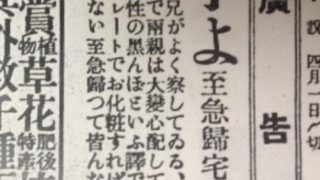 説 四月一日〆切
廣告
よ 至急歸宅
兄がよく察してゐる、
で兩親は大變心配して
性の黒んぼといふ譯で
レートでお化粧すれば
ない至急歸つて皆んな
賞植物草花肥後特産